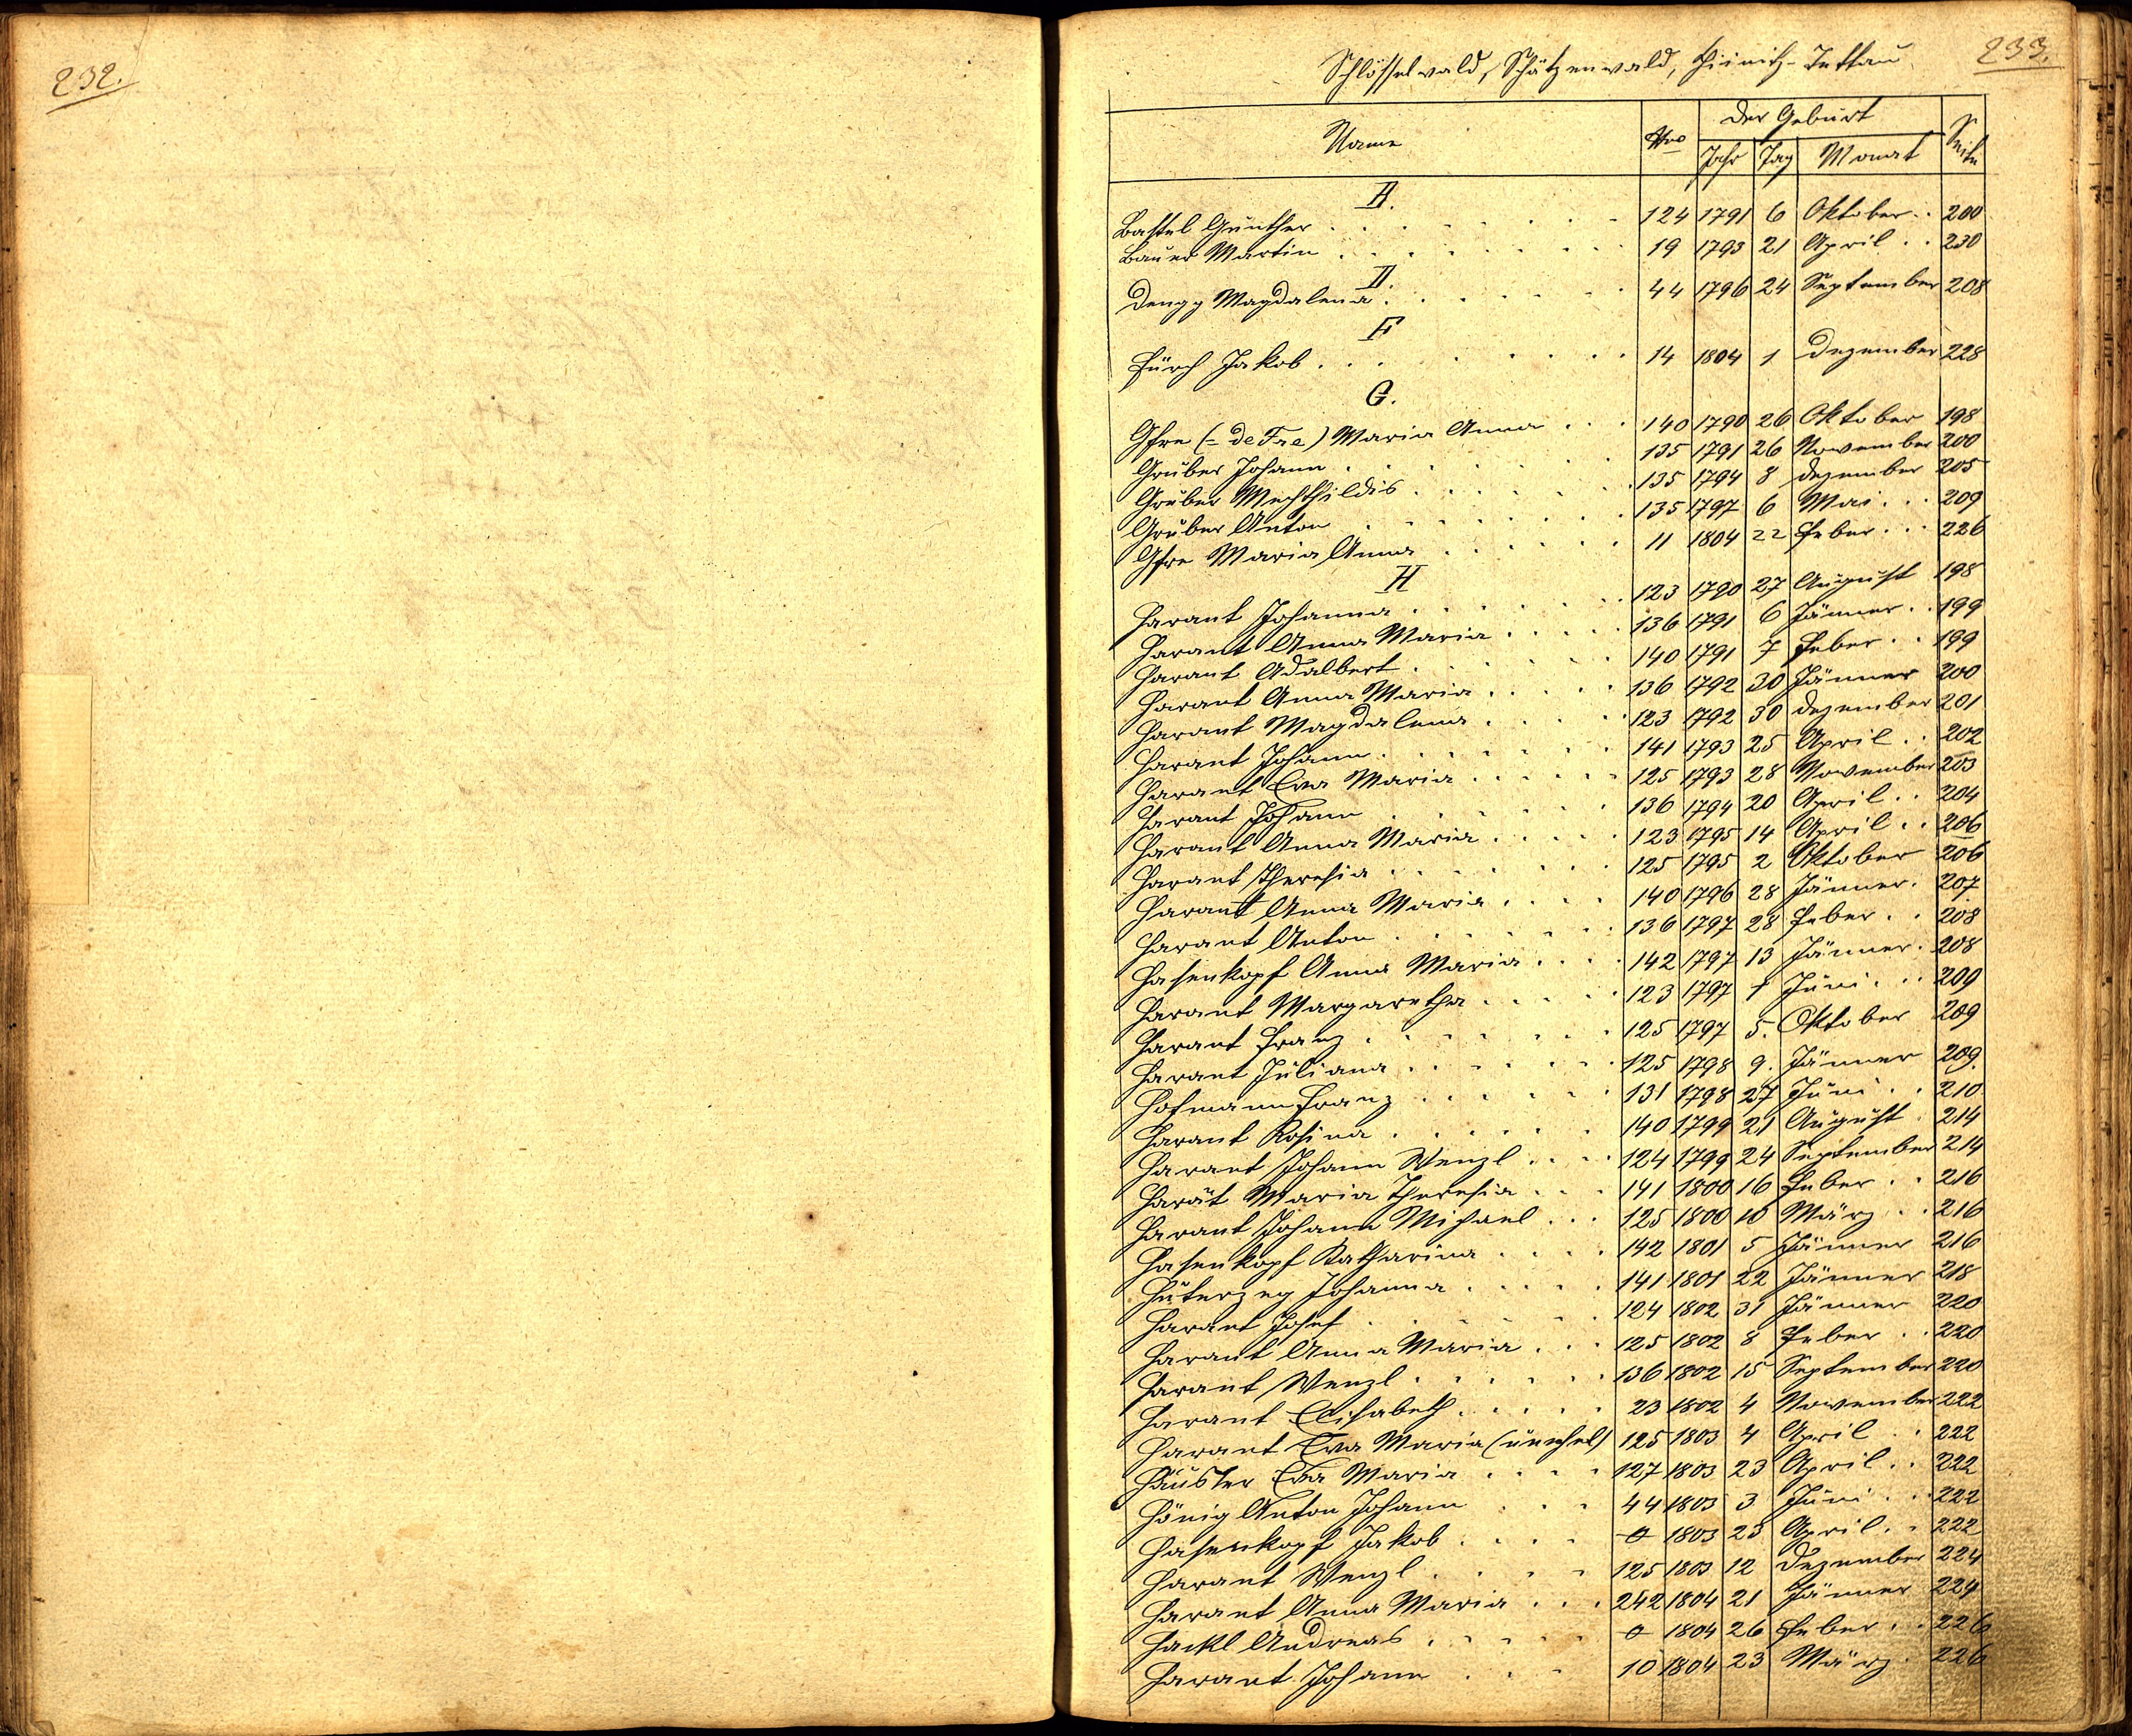 232.
233.
Schlösselwald, Schätzenwald, Hinitz-Tettau
Name Nro der Geburt Seite
Jahr Tag Monat
A.
Bastel Günther 124 1791 6 Oktober 200
Bauer Martin 19 1793 21 April 230
D.
Dengg Magdalena 44 1796 24 September 208
F
Fürch Jakob 14 1804 1 Dezember 228
G.
Gfre (= de Fre) Maria Anna 140 1790 26 Oktober 198
Gruber Johann 135 1791 26 November 200
Gruber Mechthildis 135 1794 8 Dezember 205
Gruber Anton 135 1797 6 Mai 209
Gfre Maria Anna 11 1804 22 Feber 226
H
Harant Johanna 123 1790 27 August 198
Harant Anna Maria 136 1791 6 Jänner 199
Harant Adalbert 140 1791 7 Feber 199
Harant Anna Maria 136 1792 30 Jänner 200
Harant Magdalena 123 1792 30 Dezember 201
Harant Johann 141 1793 25 April 202
Harant Eva Maria 125 1793 28 November 203
Harant Johann 136 1794 20 April 204
Harant Anna Maria 123 1795 14 April 206
Harant Theresia 125 1795 2 Oktober 206
Harant Anna Maria 140 1796 28 Jänner 207
Harant Anton 136 1797 28 Feber 208
Hasenkopf Anna Maria 142 1797 13 Jänner 208
Harant Margaretha 123 1797 1 Juni 209
Harant Franz 125 1797 5. Oktober 209
Harant Juliana 125 1798 9. Jänner 209.
Hofmann Franz 131 1798 27 Juni 210
Harant Rosina 140 1799 21 August 214
Harant Johann Wenzl 124 1799 24 September 214
Harāt Maria Theresia 141 1800 16 Feber 216
Harant Johann Michael 125 1800 10 März 216
Hasenkopf Katharina 142 1801 5 Jänner 216
Huterzeg Johanna 141 1801 22 Jänner 218
Harant Josef 124 1802 31 Jänner 220
Harant Anna Maria 125 1802 8 Feber 220
Harant Wenzl 136 1802 15 September 220
Harant Elisabeth 23 1802 4 November 222
Harant Eva Maria (unehel) 125 1803 4 April 222
Häusler Eva Maria 127 1803 23 April 222
Hönig Anton Johann 44 1803 3 Juni 222
Hasenkopf Jakob 0 1803 23 April 222
Harant Wenzl 125 1803 12 Dezember 224
Harant Anna Maria 242 1804 21 Jänner 224
Hackl Andreas 0 1804 26 Feber 226
Harant Johann 10 1804 23 März 226